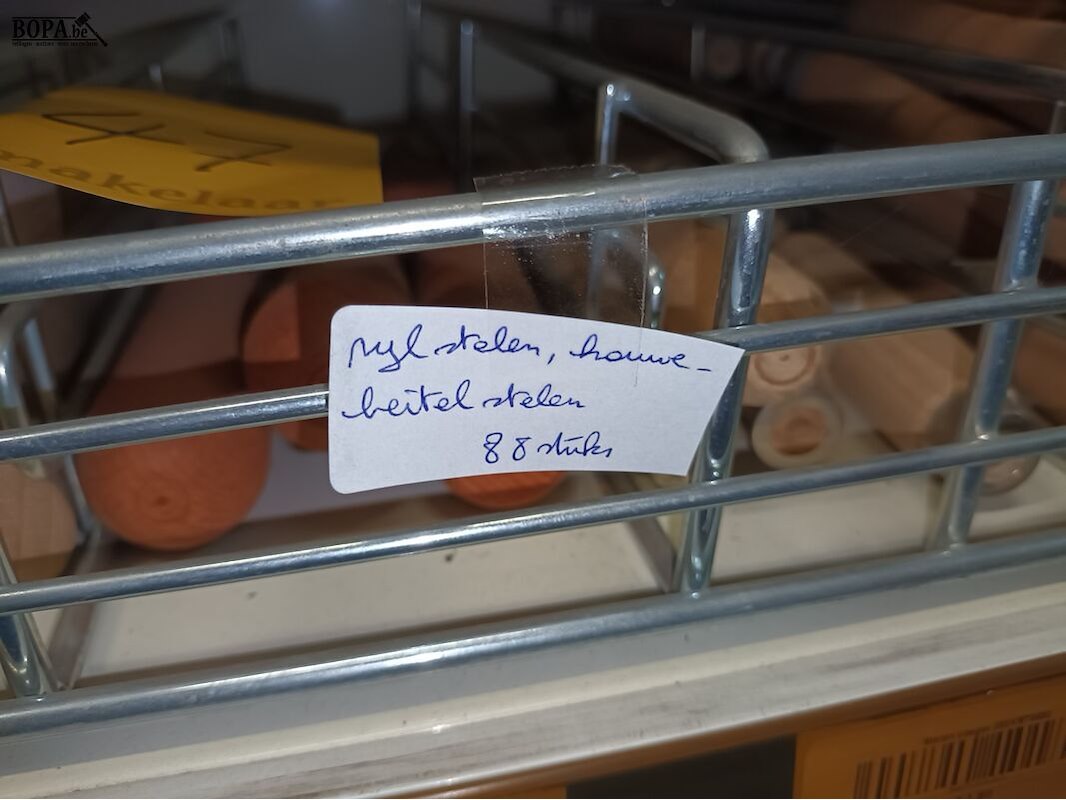 BOPA.be
47
makelaar
vyl stelen, houwe-
beitel stelen
88 stuks